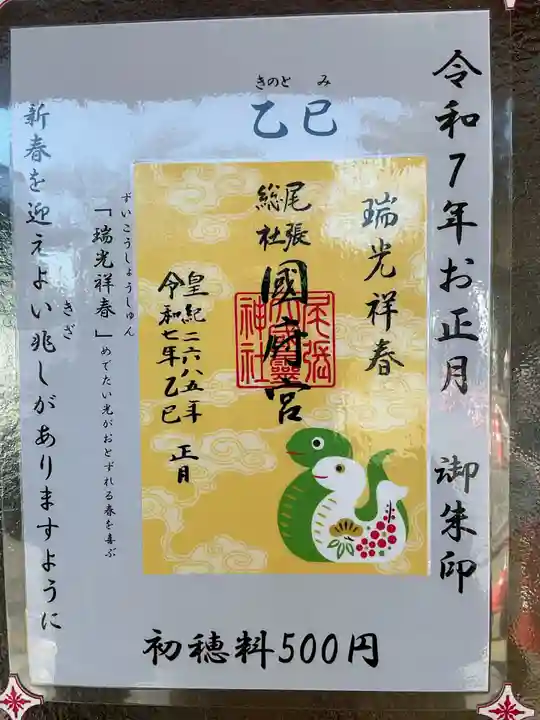 令和7年お正月 御朱印
きのと み
乙巳
瑞光祥春
尾張
総社
國府宮
皇紀二六八五年
令和七年乙巳 正月
ずいこうしょうしゅん
「瑞光祥春」めでたい光がおとずれる春を喜ぶ
きざ
新春を迎えよい兆しがありますように
初穂料500円